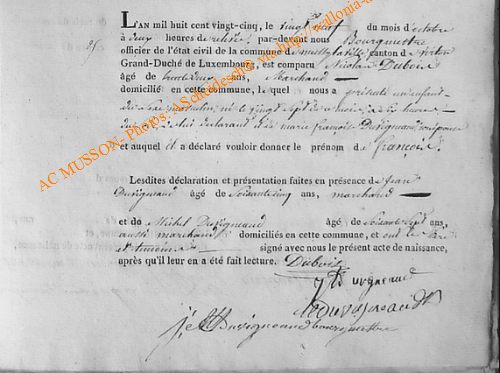 25
L'AN mil huit cent vingt-cinq, le vingt sept du mois d'octobre
à deux heures de relevée, par-devant nous Bourguettre
officier de l'état civil de la commune de canton de
Grand-Duché de Luxembourg, est comparu Nicolas Dubois
âgé de trente deux ans, Marchand
domiciliés en cette commune, lequel nous a présenté un enfant
du sexe masculin, né le vingt sept de ce mois, à dix heures
de lui déclarant et de marie françoise Duvigneaud, son épouse
et auquel il a déclaré vouloir donner le prénom de françois.
Lesdites déclaration et présentation faites en présence de jean
Duvigneaud âgé de soixante cinq ans, marchand
et de Michel Duvigneaud âgé de soixante sept ans,
aussi marchand, domiciliés en cette commune, et ont le père
et témoins signé avec nous le présent acte de naissance,
après qu'il leur en a été fait lecture. Dubois
Duvigneaud
AC MUSSON- Photos: AScheidesche